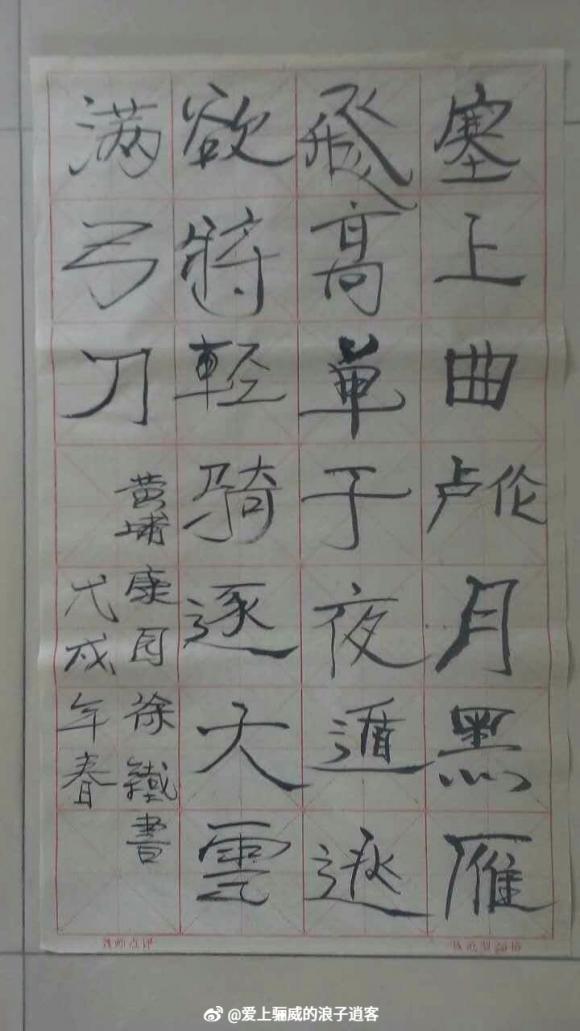 塞上曲卢伦月黑雁
飛高單于夜遁逃
欲將輕騎逐大雪
满弓刀
黄埔康园徐鐵書
戊戌年春
@爱上骊威的浪子逍客